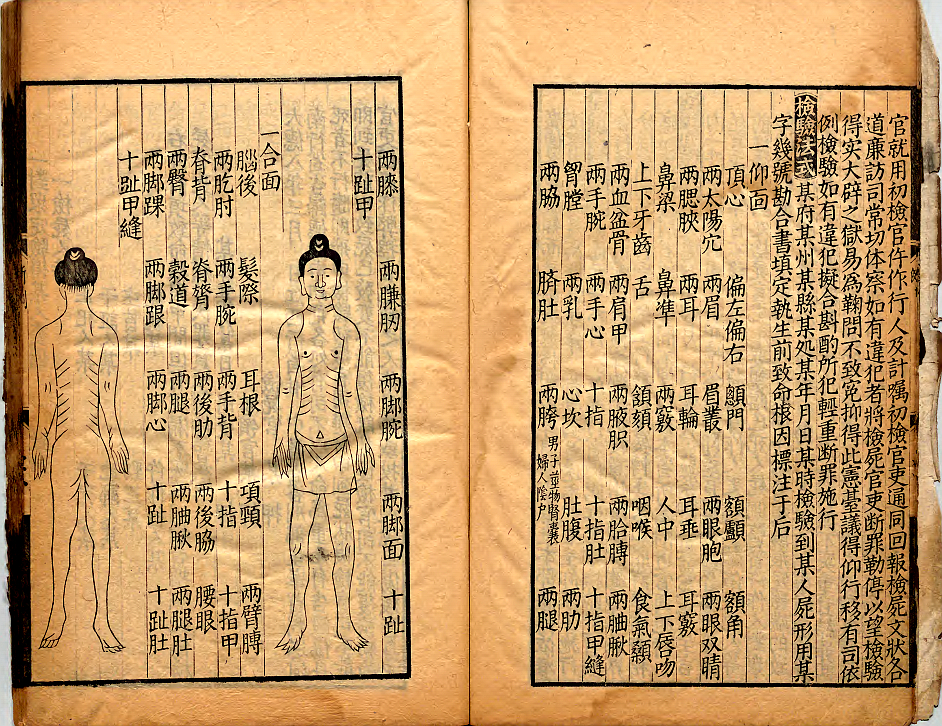 官就用初檢官仵作行人及計嘱初檢官吏逼同回報檢屍文狀各
道廉訪司常切体察如有違犯者將檢屍官吏断罪勒停以望檢驗
得实大辟之獄易為鞠問不致寃抑得此憲臺議得仰行移有司依
例檢驗如有違犯擬合斟酌所犯輕重断罪施行
檢驗法式 某府某州某縣某处某年月日某時檢驗到某人屍形用某
字幾號勘合書填定執生前致命根因標注于后
一仰面
頂心 偏左偏右 顖門 額顱 額角
兩太陽穴 兩眉 眉叢 兩眼胞 兩眼双睛
兩腮脥 兩耳 耳輪 耳埀 耳竅
鼻梁 鼻準 兩竅 人中 上下唇吻
上下牙齒 舌 頷頦 咽喉 食氣顙
兩血盆骨 兩肩甲 兩腋胑 兩肐膊 兩䏝䐐
兩手腕 兩手心 十指 十指肚 十指甲縫
胷膛 兩乳 心坎 肚腹 兩肋
兩脇 臍肚 兩胯 男子莖物腎囊 婦人陰户 兩腿
兩膝 兩臁肕 兩脚腕 兩脚面 十趾
十趾甲
一合面
腦後 髮際 耳根 項頸 兩臂膊
兩肐肘 兩手腕 兩手背 十指 十指甲
脊背 脊膂 兩後肋 兩後脇 腰眼
兩臀 榖道 兩腿 兩䏝䐐 兩腿肚
兩脚踝 兩脚跟 兩脚心 十趾 十趾肚
十趾甲縫